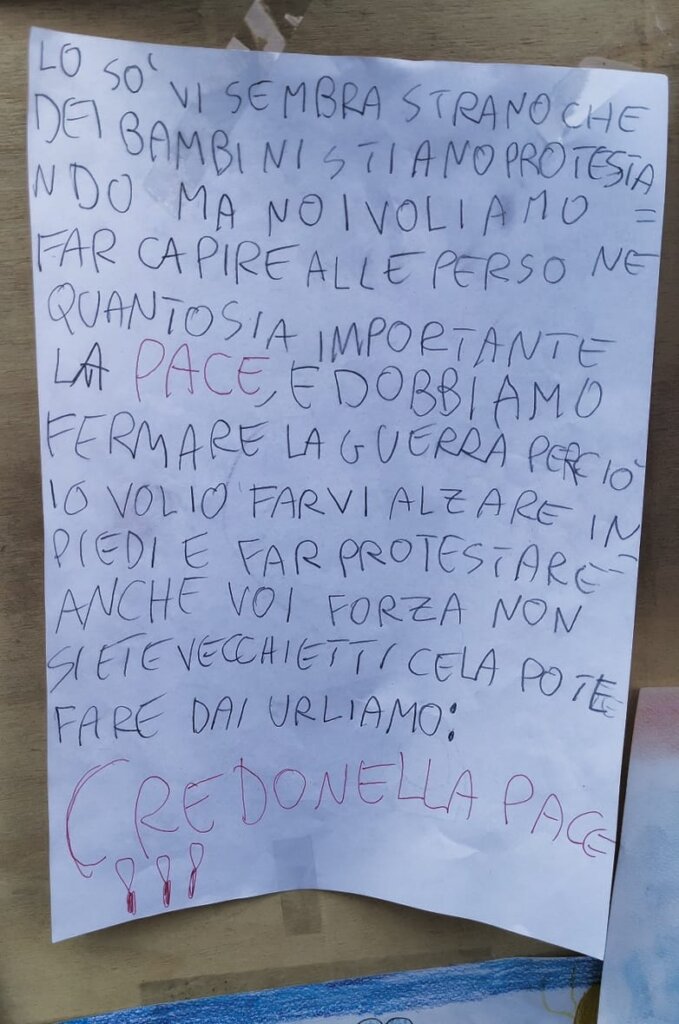 LO SO' VI SEMBRA STRANO CHE
DEI BAMBINI STIANO PROTESTA
NDO MA NOI VOLIAMO =
FAR CAPIRE ALLE PERSONE
QUANTO SIA IMPORTANTE
LA PACE, E DOBBIAMO
FERMARE LA GUERRA PERCIÒ
IO VOLIO FARVI ALZARE IN
PIEDI E FAR PROTESTARE
ANCHE VOI FORZA NON
SIETE VECCHIETTI CE LA POTE
FARE DAI URLIAMO:
CREDO NELLA PACE
!!!